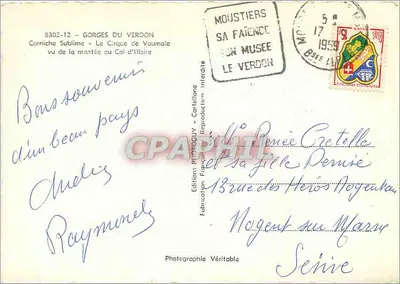 8302-12 - GORGES DU VERDON
Corniche Sublime - Le Cirque de Vaumale
vu de la montée au Col d'Illoire
MOUSTIERS
SA FAIENCE
SON MUSEE
LE VERDON
17
1959
Bses ALP
Bons souvenirs
d'un beau pays
Andrée
Raymond
Editions PHOTOGUY - Castellane
Fabrication Française - Reproduction Interdite
CPAPHIL
Mme Renée Cretelle
et sa fille Denise
13 rue des Héros Nogentais
Nogent sur Marne
Seine
Photographie Véritable